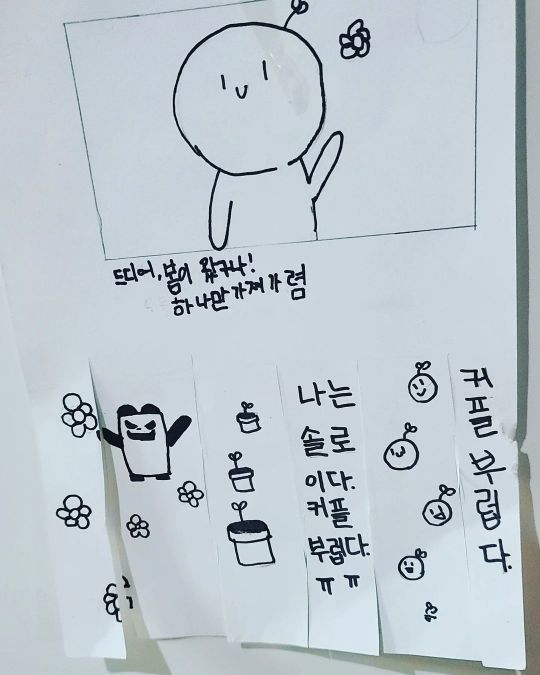 뜨디어, 봄이 왔구나!
하나만 가져가렴
나는
솔로
이다.
커플
부럽다.
ㅠㅠ
커플 부럽다.